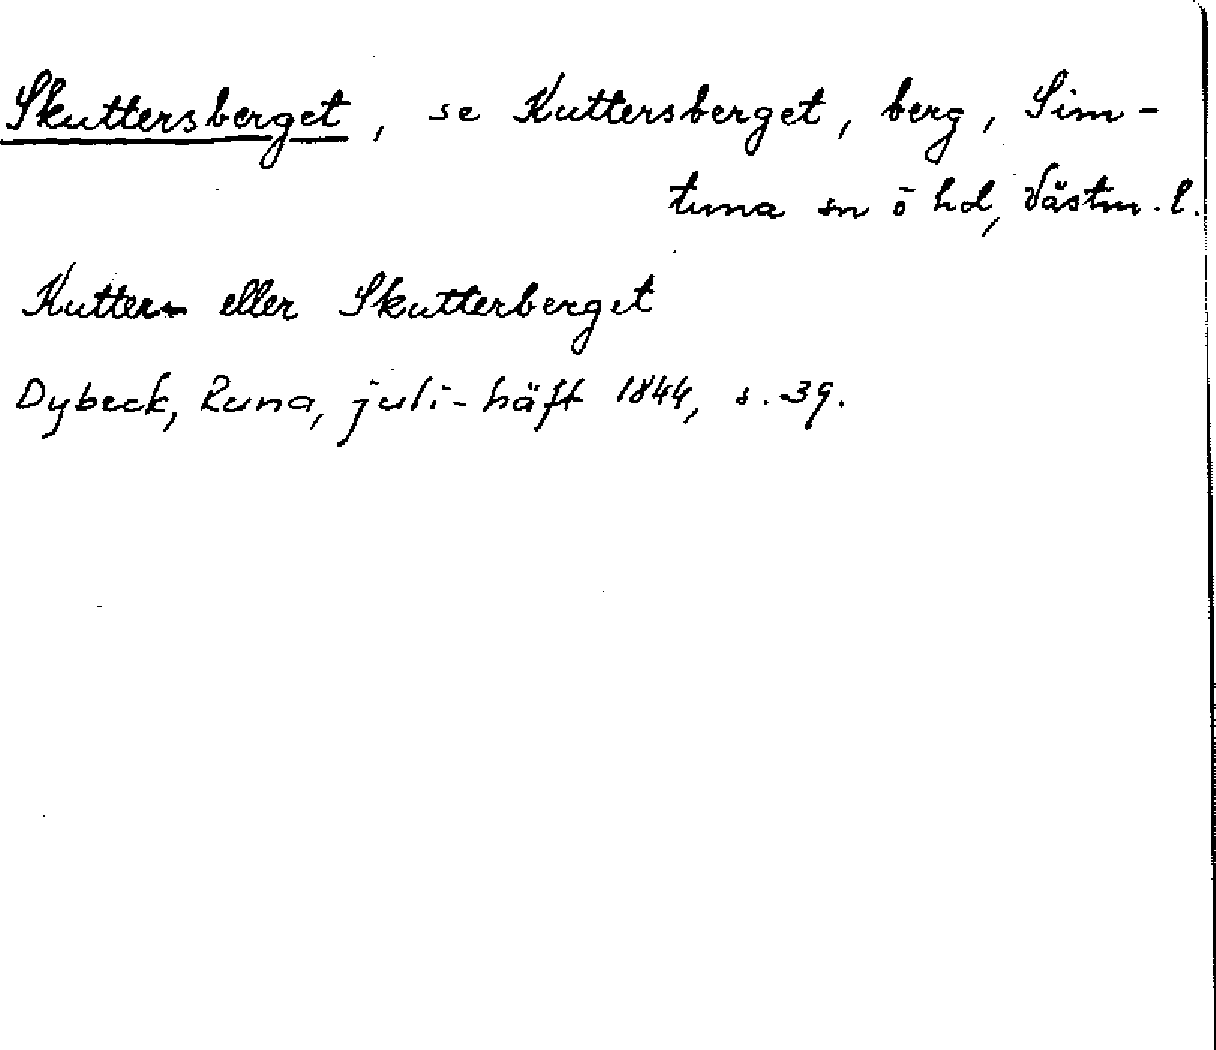 Skuttersberget, se Kuttersberget, berg, Sim-
tuna sn ö hd, Västm. l.
Kutter- eller Skutterberget
Dybeck, Runa, juli-häft 1844, s. 39.